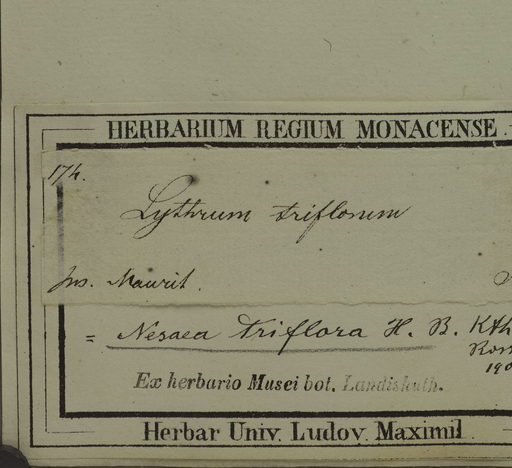 HERBARIUM REGIUM MONACENSE
174.
Lythrum triflorum
Ins. Maurit.
= Nesaea triflora H. B. Kth
190
Ex herbario Musei bot. Landishuth.
Herbar Univ. Ludov. Maximil.